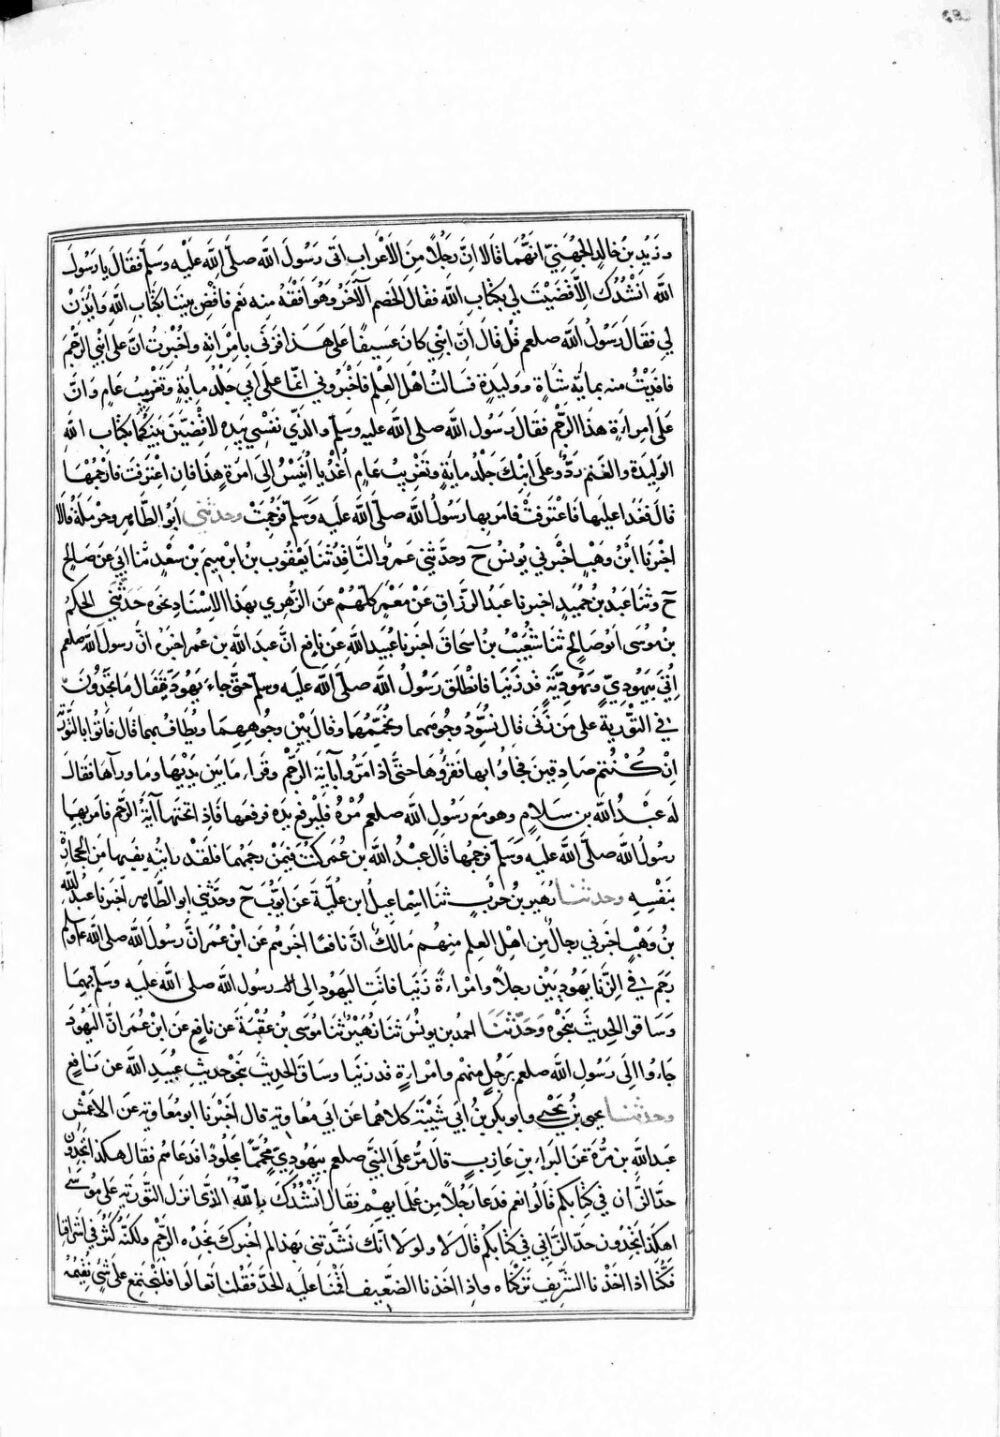 وزيد بن خالد الجهني انهما قالا ان رجلا من الاعراب اتى رسول الله صلى الله عليه وسلم فقال يا رسول
الله انشدك الا قضيت لي بكتاب الله فقال الخصم الآخر وهو افقه منه نعم فاقض بيننا بكتاب الله وايذن
لي فقال رسول الله صلعم قل قال ان ابني كان عسيفا على هذا فزنى بامراته واخبرت ان على ابني الرجم
فافديت منه بماية شاة ووليدة فسالت اهل العلم فاخبروني انما على ابني جلد ماية وتغريب عام وان
على امراءة هذا الرجم فقال رسول الله صلى الله عليه وسلم والذي نفسي بيده لاقضين بينكما بكتاب الله
الوليدة والغنم رد وعلى ابنك جلد ماية وتغريب عام اغد يا انيس الى امرة هذا فان اعترفت فارجمها
قال فغدا عليها فاعترفت فامر بها رسول الله صلى الله عليه وسلم فرجمت وحدثني ابو الطاهر وحرملة قالا
اخبرنا ابن وهب اخبرني يونس ح وحدثني عمرو الناقد ثنا يعقوب بن ابرهيم بن سعد ثنا ابي عن صالح
ح وثنا عبد بن حميد اخبرنا عبد الرزاق عن معمر كلهم عن الزهري بهذا الاسناد نحوه حدثني الحكم
بن موسى ابو صالح ثنا شعيب بن اسحاق اخبرنا عبيد الله عن نافع ان عبد الله بن عمر اخبره ان رسول الله صلعم
اتي بيهودي ويهودية قد زنيا فانطلق رسول الله صلى الله عليه وسلم حتى جاء يهود فقال ما تجدون
في التورية على من زنى قال نسود وجوههما ونحممهما وقال بين وجوههما ويطاف بهما قال فاتوا بالتورية
ان كنتم صادقين فجاوا بها فقرؤها حتى اذا مروا بآية الرجم وقراء ما بين يديها وما ورآها فقال
له عبد الله بن سلام وهو مع رسول الله صلعم مره فليرفع يده فرفعها فاذا تحتها آية الرجم فامر بهما
رسول الله صلى الله عليه وسلم فرجمها قال عبد الله بن عمر كنت فيمن رجمهما فلقد رايته يقيها من الحجارة
بنفسه وحدثنا زهير بن حرب ثنا اسماعيل ابن علية عن ايوب ح وحدثني ابو الطاهر اخبرنا عبد الله
بن وهب اخبرني رجال من اهل العلم منهم مالك ان نافعا اخبرهم عن ابن عمر ان رسول الله صلى الله عليه وسلم
رجم في الزنا يهوديين رجلا وامراءة زنيا فاتت اليهود الى رسول الله صلى الله عليه وسلم بهما
وساقوا الحديث بنحوه وحدثنا احمد بن يونس ثنا زهير ثنا موسى بن عقبة عن نافع عن ابن عمر ان اليهود
جاءوا الى رسول الله صلعم برجل منهم وامراءة قد زنيا وساق الحديث بنحو حديث عبيد الله عن نافع
وحدثنا يحيى بن يحيى وابو بكر بن ابي شيبة كلاهما عن ابي معاوية قال اخبرنا ابو معاوية عن الاعمش
عبد الله بن مرة عن البراء بن عازب قال مر على النبي صلعم بيهودي محمما مجلودا فدعاهم فقال هكذا تجدون
حد الزان في كتابكم قالوا نعم فدعا رجلا من علمايهم فقال انشدك بالله الذي انزل التورية على موسى
اهكذا تجدون حد الزاني في كتابكم قال لا ولولا انك نشدتني بهذا لم اخبرك نجده الرجم ولكنه كثر في اشرافنا
فكنا اذا اخذنا الشريف تركناه واذا اخذنا الضعيف اقمنا عليه الحد فقلنا تعالوا فلنجتمع على شي نقيمه